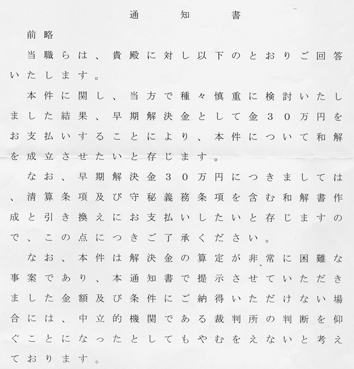 通知書
前略
当職らは、貴殿に対し以下のとおりご回答
いたします。
本件に関し、当方で種々慎重に検討いたし
ました結果、早期解決金として金３０万円を
お支払いすることにより、本件について和解
を成立させたいと存じます。
なお、早期解決金３０万円につきましては
、清算条項及び守秘義務条項を含む和解書作
成と引き換えにお支払いしたいと存じますの
で、この点につきご了承ください。
なお、本件は解決金の算定が非常に困難な
事案であり、本通知書で提示させていただき
ました金額及び条件にご納得いただけない場
合には、中立的機関である裁判所の判断を仰
ぐことになったとしてもやむをえないと考え
ております。